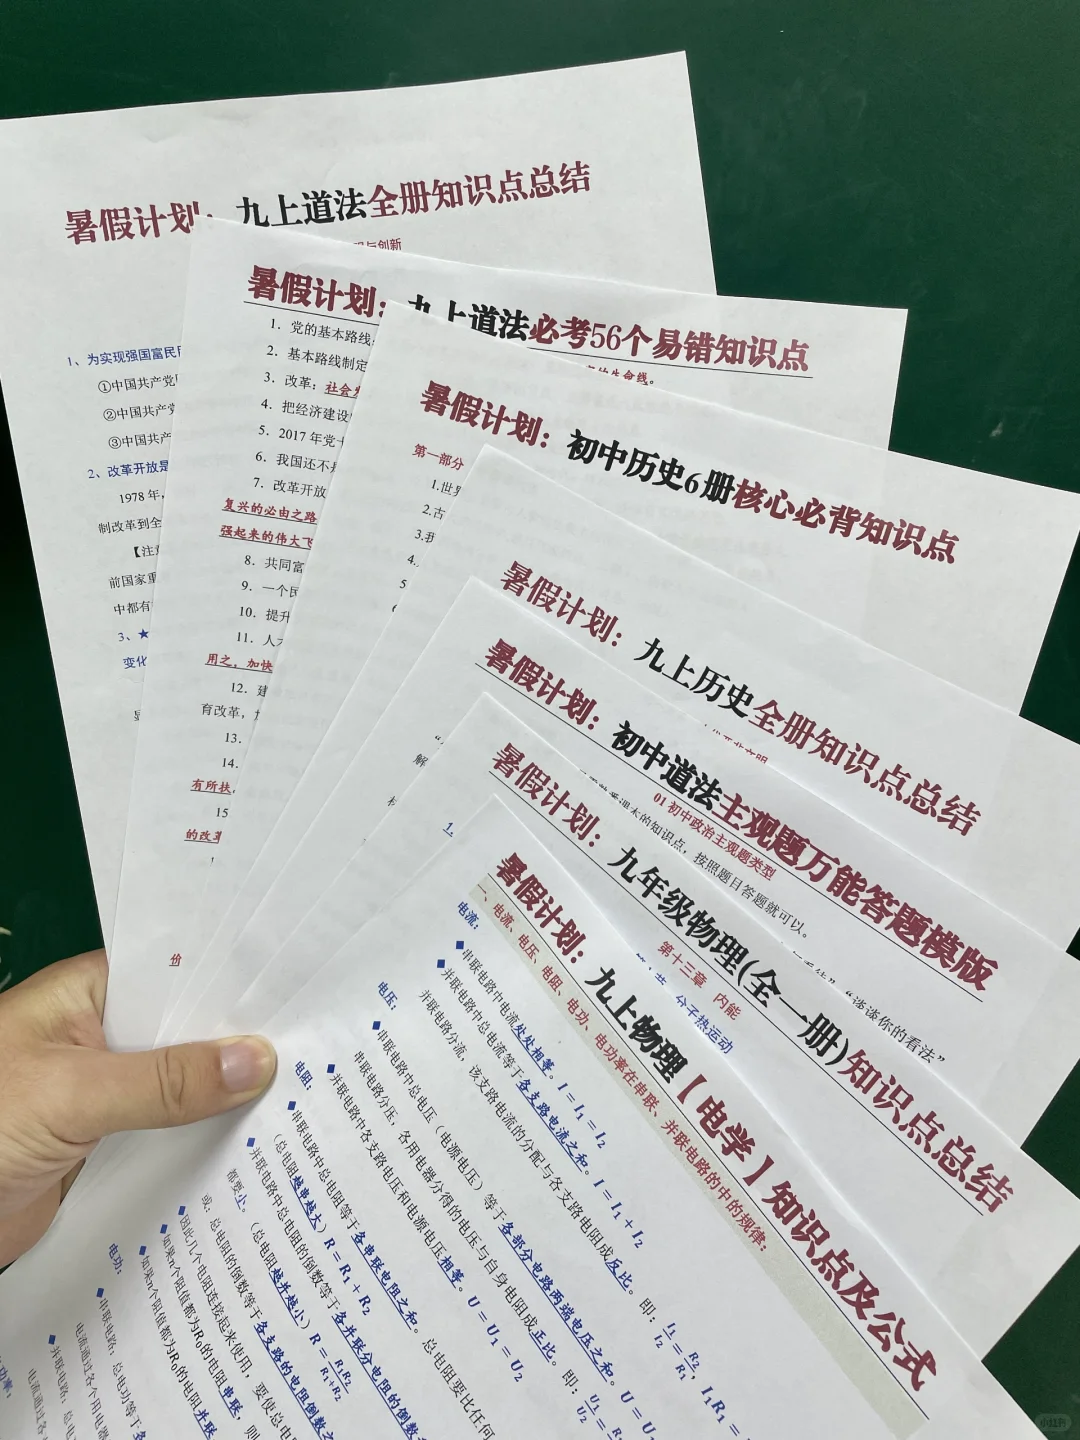 暑假计划：九上道法全册知识点总结
与创新
1、为实现强国富民
①中国共产党
②中国共产党
③中国共产
2、改革开放是
1978 年，
制改革到全
【注
前国家重
中都有
3、★
变化
暑假计划：九上道法必考56个易错知识点
1．党的基本路线
生命线。
2．基本路线制定
3．改革：社会
4．把经济建设
5．2017 年党
6．我国还不
7．改革开放
复兴的必由之路
强起来的伟大飞
8．共同富
9．一个民
10．提升
11．人
用之，加快
12．建
育改革，
13．
14．
有所扶，
15
的改革
价
暑假计划：初中历史6册核心必背知识点
第一部分
1.世界
2.古
3.我
4.
5
6
暑假计划：九上历史全册知识点总结
暑假计划：初中道法主观题万能答题模版
01 初中政治主观题类型
课本的知识点，按照题目答题就可以。
“谈谈你的看法”
解
1.
暑假计划：九年级物理(全一册)知识点总结
第十三章 内能
分子热运动
暑假计划：九上物理【电学】知识点及公式
一、电流、电压、电阻、电功、电功率在串联、并联电路的中的规律：
电流：
■ 串联电路中电流处处相等。I = I₁ = I₂
■ 并联电路中总电流等于各支路电流之和。I = I₁ + I₂
并联电路分流，该支路电流的分配与各支路电阻成反比。即：I₁/I₂ = R₂/R₁，I₁R₁ =
电压：
■ 串联电路中总电压（电源电压）等于各部分电路两端电压之和。U = U₁
串联电路分压，各用电器分得的电压与自身电阻成正比。即：U₁/U₂ = R₁
■ 并联电路中各支路电压和电源电压相等。U = U₁ = U₂
电阻：
■ 串联电路中总电阻等于各串联电阻之和。总电阻要比任何
（总电阻越串越大）R = R₁ + R₂
■ 并联电路中总电阻的倒数等于各并联分电阻的倒数
都要小。（总电阻越并越小）R = R₁R₂/R₁+R₂
或：总电阻的倒数等于各支路的电阻倒数之
■ 因此几个电阻连接起来使用，要使总电
■ 如果n个阻值都为R₀的电阻串联，则
■ 如果n个阻值都为R₀的电阻并联
电功：
■ 串联电路：总电功等于各
电流通过各个用电器
■ 并联电路：总
电流通过各
功率：
小红书